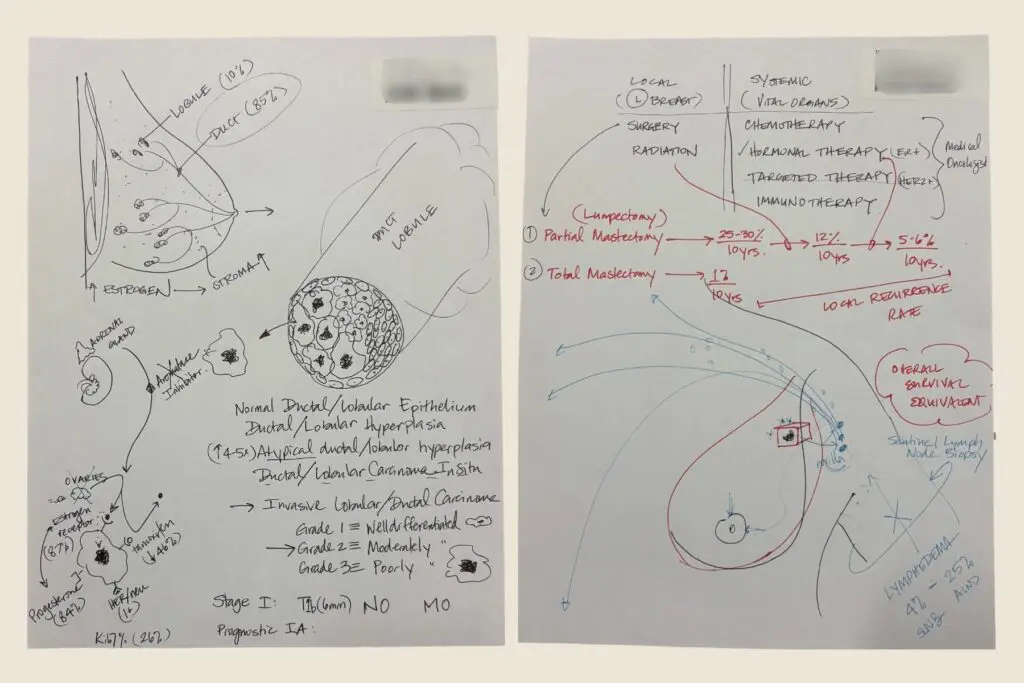 LOBULE (10%)
DUCT (85%)
↑ ESTROGEN → STROMA ↑
ADRENAL
GLAND
Inhibitor
DUCT
LOBULE
Normal Ductal/Lobular Epithelium
Ductal/Lobular Hyperplasia
(↑4-5x) Atypical ductal/lobular hyperplasia
Ductal/Lobular Carcinoma In Situ
→ Invasive Lobular/Ductal Carcinoma
Grade 1 ≡ Well differentiated
→ Grade 2 ≡ Moderately "
Grade 3 ≡ Poorly "
OVARIES
Estrogen
receptor
(87%)
tamoxifen
(↓46%)
Progesterone
(84%)
HER/neu
(1+)
Ki67% (26%)
Stage I: T1b(6mm) N0 M0
Prognostic IA:
LOCAL
(L BREAST)
SURGERY
RADIATION
SYSTEMIC
(VITAL ORGANS)
CHEMOTHERAPY
✓HORMONAL THERAPY (ER+)
TARGETED THERAPY (HER2+)
IMMUNOTHERAPY
Medical
Oncologist
(Lumpectomy)
① Partial Mastectomy → 25-30%/10yrs. → 12%/10yrs → 5-6%/10yrs.
② Total Mastectomy → 1%/10yrs
LOCAL RECURRENCE
RATE
OVERALL
SURVIVAL
EQUIVALENT
Sentinel Lymph
Node Biopsy
LYMPHEDEMA
4% - 25%
SNB ALND